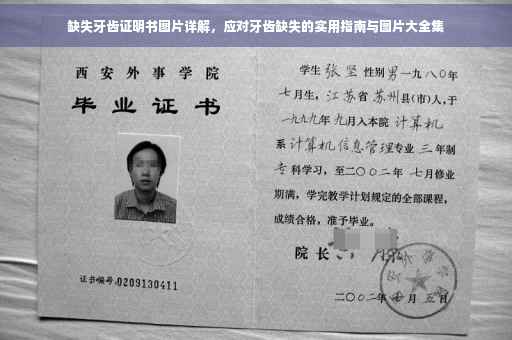 缺失牙齿证明书图片详解，应对牙齿缺失的实用指南与图片大全集
西安外事学院
毕业证书
证书编号:0209130411
学生 张坚 性别 男 一九八〇年
七月生，江苏省 苏州县(市)人，于
一九九九年 九月入本院 计算机
系 计算机信息管理专业 三 年制
专科学习，至二〇〇二年 七月修业
期满，学完教学计划规定的全部课程，
成绩合格，准予毕业。
院长
二〇〇二年 月 五日